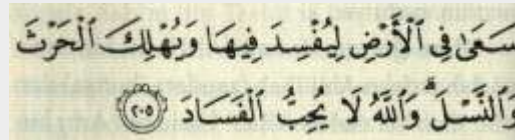 سَعَىٰ فِى ٱلْأَرْضِ لِيُفْسِدَ فِيهَا وَيُهْلِكَ ٱلْحَرْثَ
وَٱلنَّسْلَ ۗ وَٱللَّهُ لَا يُحِبُّ ٱلْفَسَادَ ٢٠٥